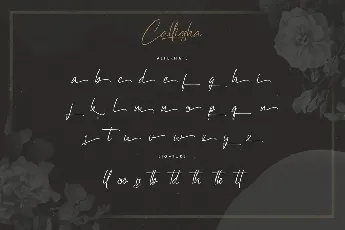 Calligha
ALTERNATE
a b c d e f g h i
j k l m n o p q r
s t u v w x y z
LIGATURE
ll oo gg tb td th tk tt